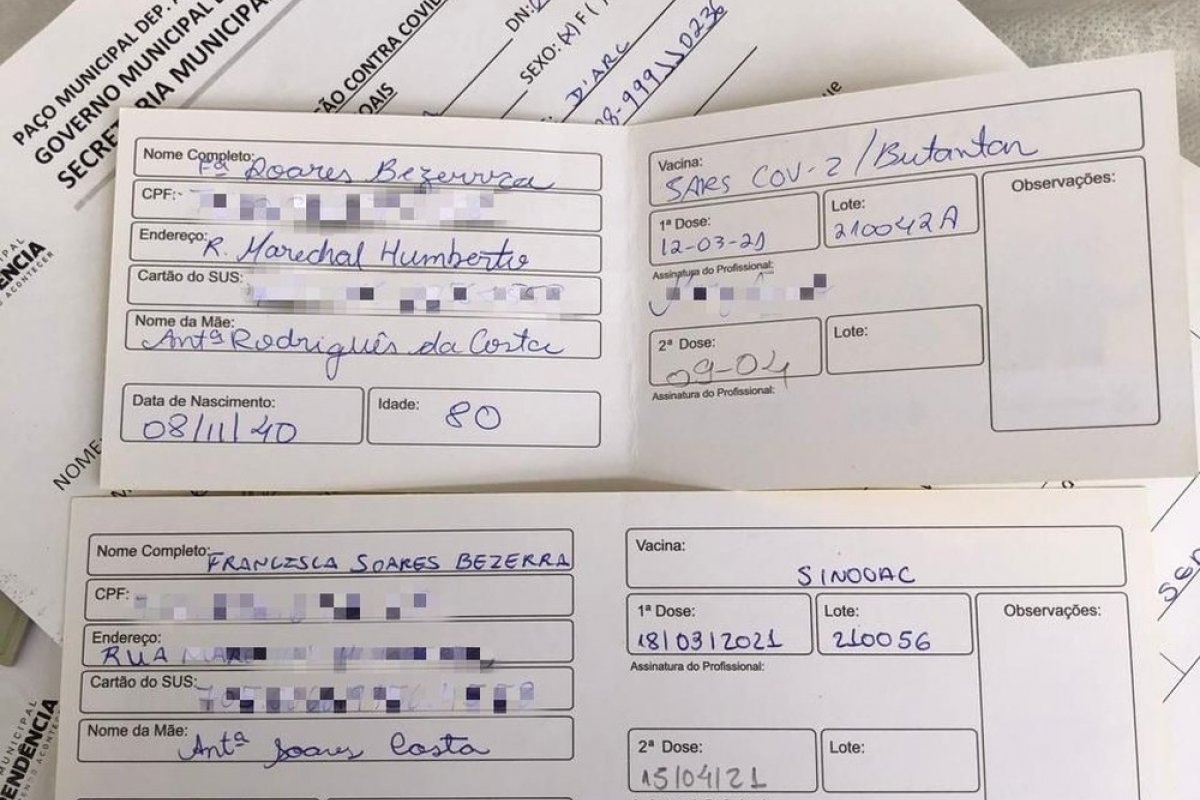 PAÇO MUNICIPAL DEP.
GOVERNO MUNICIPAL
SECRETARIA MUNICIPAL
ÃO CONTRA COVID
OAIS
DN:
SEXO: (X) F ( )
D'ARC
98-999110236
Nome Completo: Fª Soares Bezerrra
CPF:
Endereço: R. Marechal Humberto
Cartão do SUS:
Nome da Mãe: Antª Rodriguês da Costa
Data de Nascimento: 08/11/40
Idade: 80
Vacina: SARS COV-2/Butantan
1ª Dose: 12-03-21
Lote: 210042A
Observações:
Assinatura do Profissional:
2ª Dose: 09-04
Lote:
Assinatura do Profissional:
NOME
Nome Completo: FRANCISCA SOARES BEZERRA
CPF:
Endereço: RUA
Cartão do SUS:
Nome da Mãe: Antª Soares Costa
Vacina: SINOOAC
1ª Dose: 18/03/2021
Lote: 210056
Observações:
Assinatura do Profissional:
2ª Dose: 15/04/21
Lote: